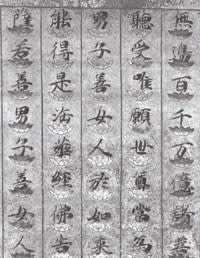 無邊百千万億諸菩
聽受唯願世尊當為
男子善女人於如來
能得是法華經佛告
薩若善男子善女人